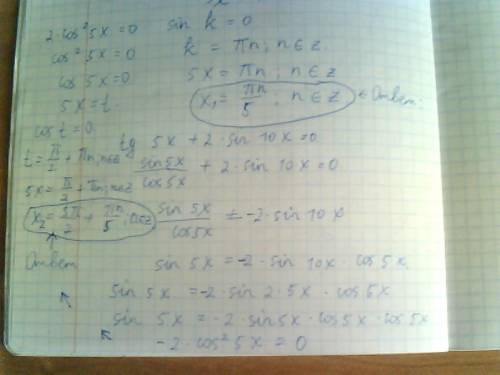 2 cos² 5x = 0
cos² 5x = 0
cos 5x = 0
5x = t
cos t = 0
t = π/2 + πn; n∈z
5x = π/2 + πn; n∈z
x₂ = 5π/2 + πn/5; n∈z
Ответ
sin k = 0
k = πn; n∈z
5x = πn; n∈z
x₁ = πn/5; n∈z ← Ответ:
tg 5x + 2·sin 10x = 0
sin5x/cos5x + 2·sin 10x = 0
sin 5x/cos5x = -2·sin 10x
sin 5x = -2·sin 10x·cos 5x
sin 5x = -2·sin 2·5x·cos 5x
sin 5x = -2·sin5x·cos5x·cos 5x
-2·cos² 5x = 0